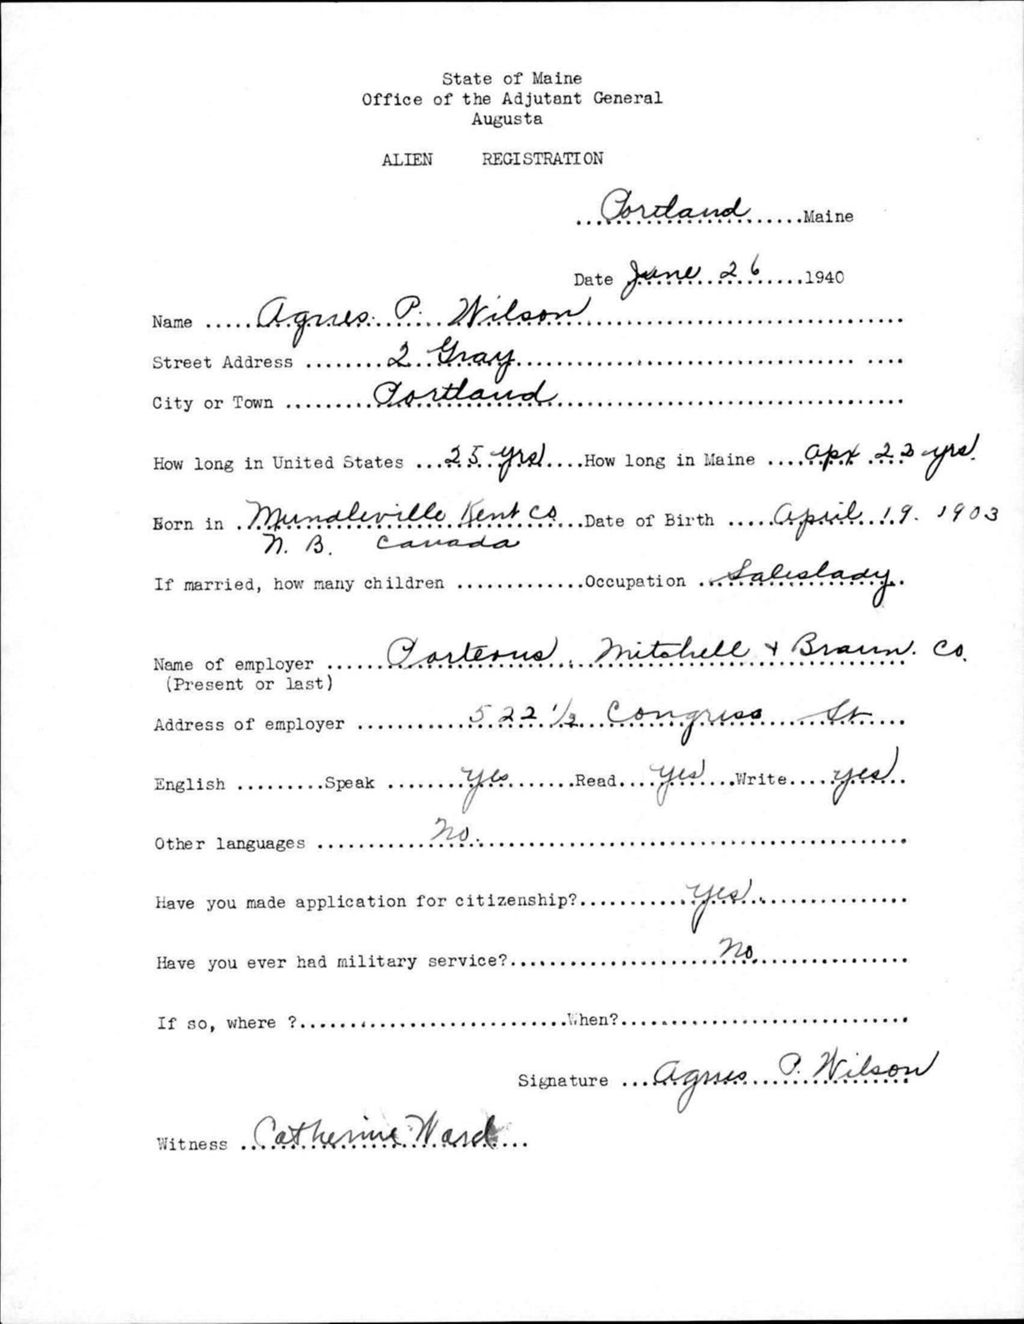 State of Maine
Office of the Adjutant General
Augusta
ALIEN REGISTRATION
Portland Maine
Date June 26 1940
Name Agnes P. Wilson
Street Address 2 Gray
City or Town Portland
How long in United States 25 yrs How long in Maine apx 22 yrs.
Born in Mundleville Kent Co Date of Birth April 19. 1903
N. B. Canada
If married, how many children Occupation Saleslady
Name of employer Porteous, Mitchell + Braun. Co.
(Present or last)
Address of employer 522 1/2 Congress St
English Speak yes Read yes Write yes
Other languages No.
Have you made application for citizenship? yes
Have you ever had military service? No.
If so, where ? When?
Signature Agnes P. Wilson
Witness Catherine Ward